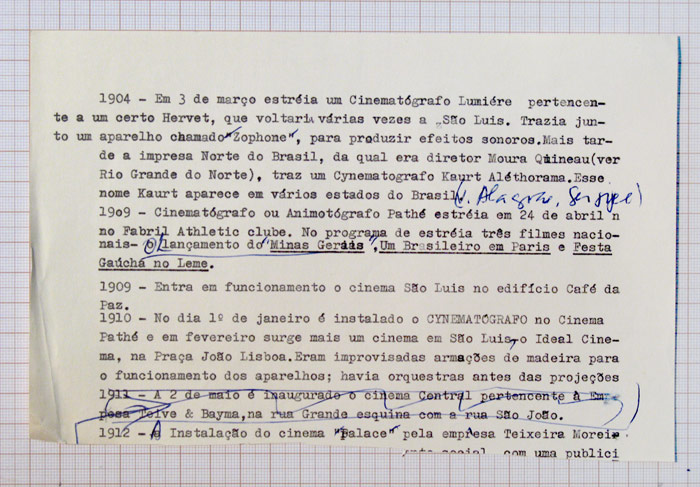 1904 - Em 3 de março estréia um Cinematógrafo Lumiére pertencen-
te a um certo Hervet, que voltaria várias vezes a São Luis. Trazia jun-
to um aparelho chamado "Zophone", para produzir efeitos sonoros.Mais tar-
de a impresa Norte do Brasil, da qual era diretor Moura Quineau(ver
Rio Grande do Norte), traz um Cynematografo Kaurt Aléthorama.Esse
nome Kaurt aparece em vários estados do Brasil (v. Alagoas, Sergipe)
19o9 - Cinematógrafo ou Animotógrafo Pathé estréia em 24 de abril n
no Fabril Athletic clube. No programa de estréia três filmes nacio-
nais- o lançamento do "Minas Gerais",Um Brasileiro em Paris e Festa
Gaúcha no Leme.
1909 - Entra em funcionamento o cinema São Luis no edifício Café da
Paz.
1910 - No dia 1º de janeiro é instalado o CYNEMATÓGRAFO no Cinema
Pathé e em fevereiro surge mais um cinema em São Luis, o Ideal Cine-
ma, na Praça João Lisboa.Eram improvisadas armações de madeira para
o funcionamento dos aparelhos; havia orquestras antes das projeções
1911 - A 2 de maio é inaugurado o cinema Central pertencente à Em-
presa Teive & Bayma,na rua Grande esquina com a rua São João.
1912 - A Instalação do cinema "Palace" pela empresa Teixeira Moreir
social com uma publici